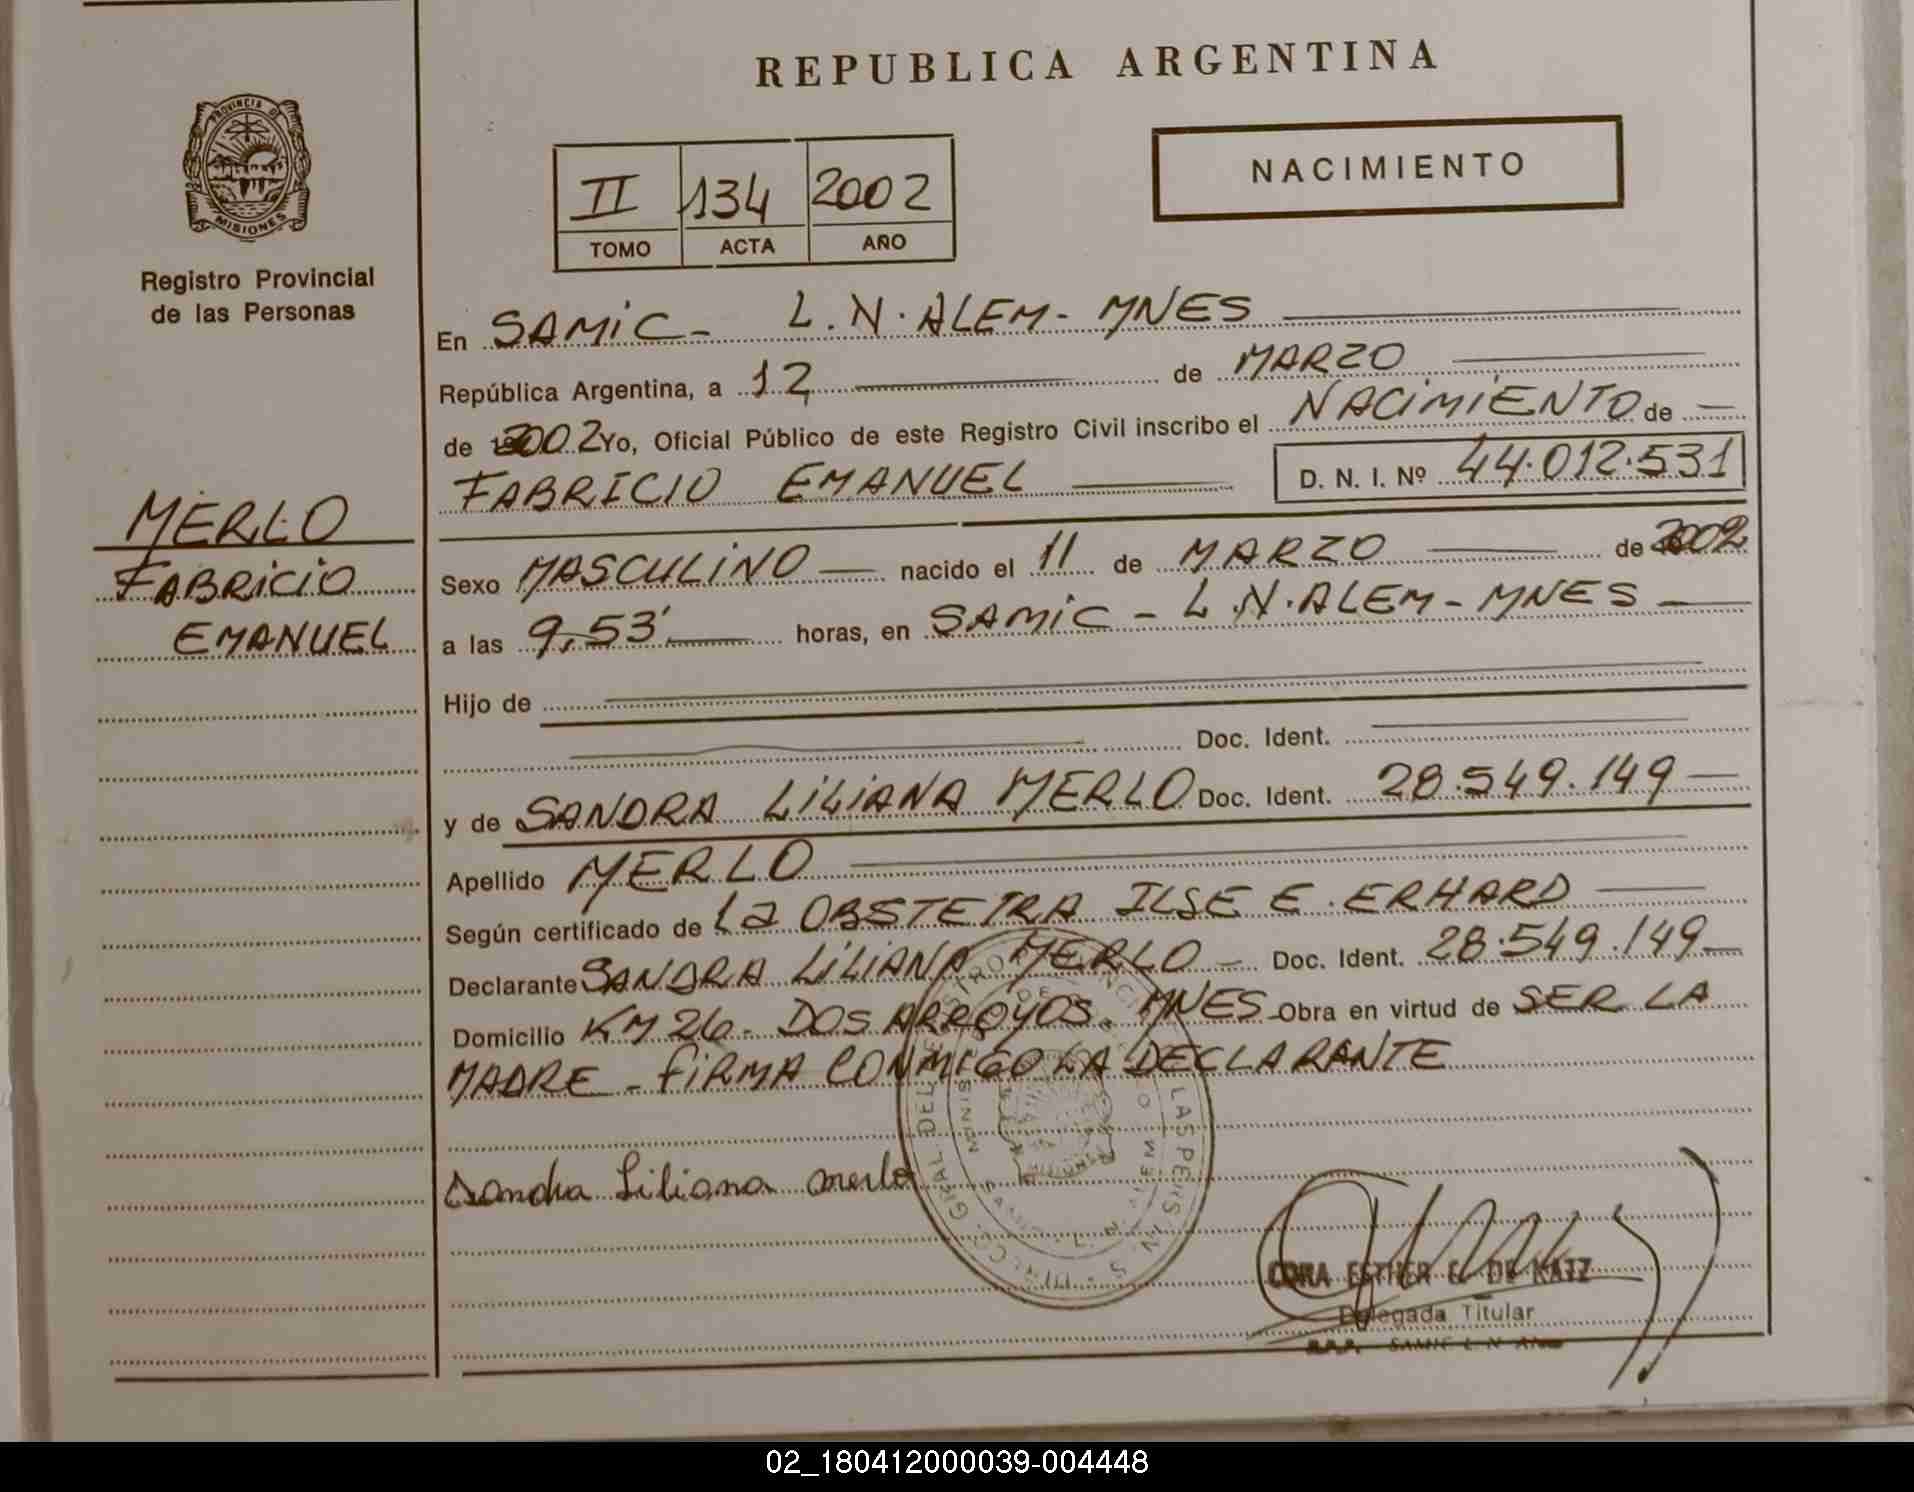 REPUBLICA ARGENTINA
PROVINCIA DE
MISIONES
Registro Provincial
de las Personas
NACIMIENTO
II 134 2002
TOMO ACTA AÑO
En SAMIC - L.N. ALEM - MNES
República Argentina, a 12 de MARZO
de 2002 Yo, Oficial Público de este Registro Civil inscribo el NACIMIENTO de
FABRICIO EMANUEL D. N. I. Nº 44.012.531
MERLO
FABRICIO
EMANUEL
Sexo MASCULINO nacido el 11 de MARZO de 2002
a las 9,53' horas, en SAMIC - L.N. ALEM - MNES
Hijo de
Doc. Ident.
y de SANDRA LILIANA MERLO Doc. Ident. 28.549.149
Apellido MERLO
Según certificado de La OBSTETRA ILSE E. ERHARD
Declarante SANDRA LILIANA MERLO Doc. Ident. 28.549.149
Domicilio KM 26 - DOS ARROYOS. MNES Obra en virtud de SER LA
MADRE - FIRMA CONMIGO LA DECLARANTE
Sandra Liliana Merlo
CORA ESTHER G. DE KATZ
Delegada Titular
R.P.P. SAMIC L. N.
02_180412000039-004448